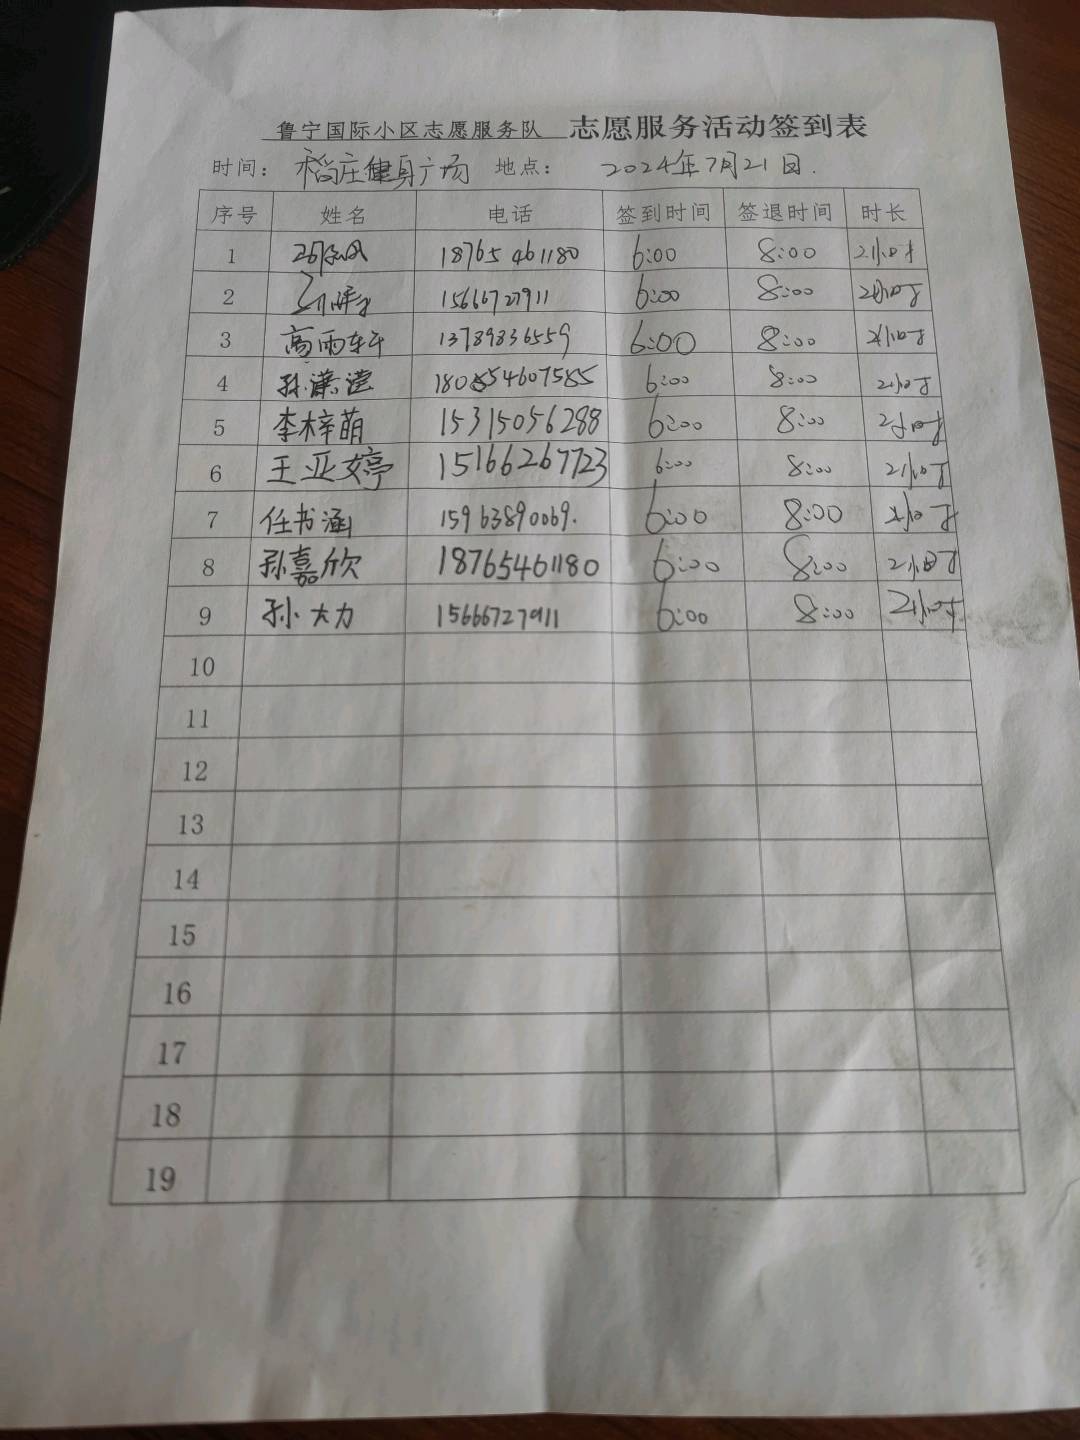 鲁宁国际小区志愿服务队 志愿服务活动签到表
时间： 稻庄健身广场 地点： 2024年7月21日.
序号 姓名 电话 签到时间 签退时间 时长
1 18765461180 6:00 8:00 2小时
2 15666727911 6:00 8:00 2小时
3 高雨轩 13789836559 6:00 8:00 2小时
4 孙潇滢 6:00 8:00 2小时
5 李梓萌 15315056288 6:00 8:00 2小时
6 王亚婷 15166267723 6:00 8:00 2小时
7 任书涵 15963890069. 6:00 8:00 2小时
8 孙嘉欣 18765461180 6:00 8:00 2小时
9 孙大力 15666727911 6:00 8:00 2小时
10
11
12
13
14
15
16
17
18
19